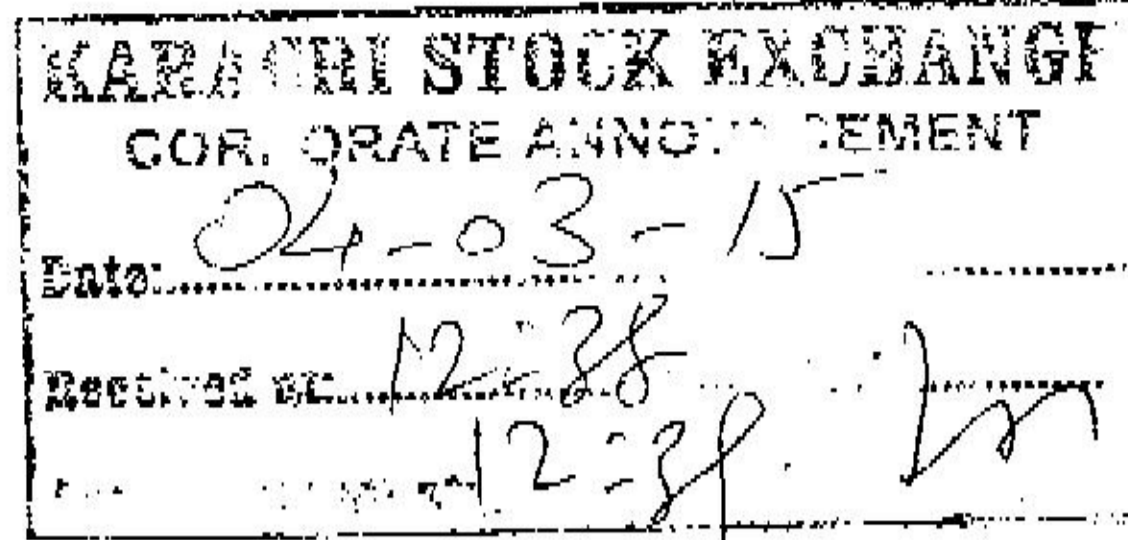 KARACHI STOCK EXCHANGE
CORPORATE ANNOUNCEMENT
Date: 04-03-15
Received at 12:38
12:39